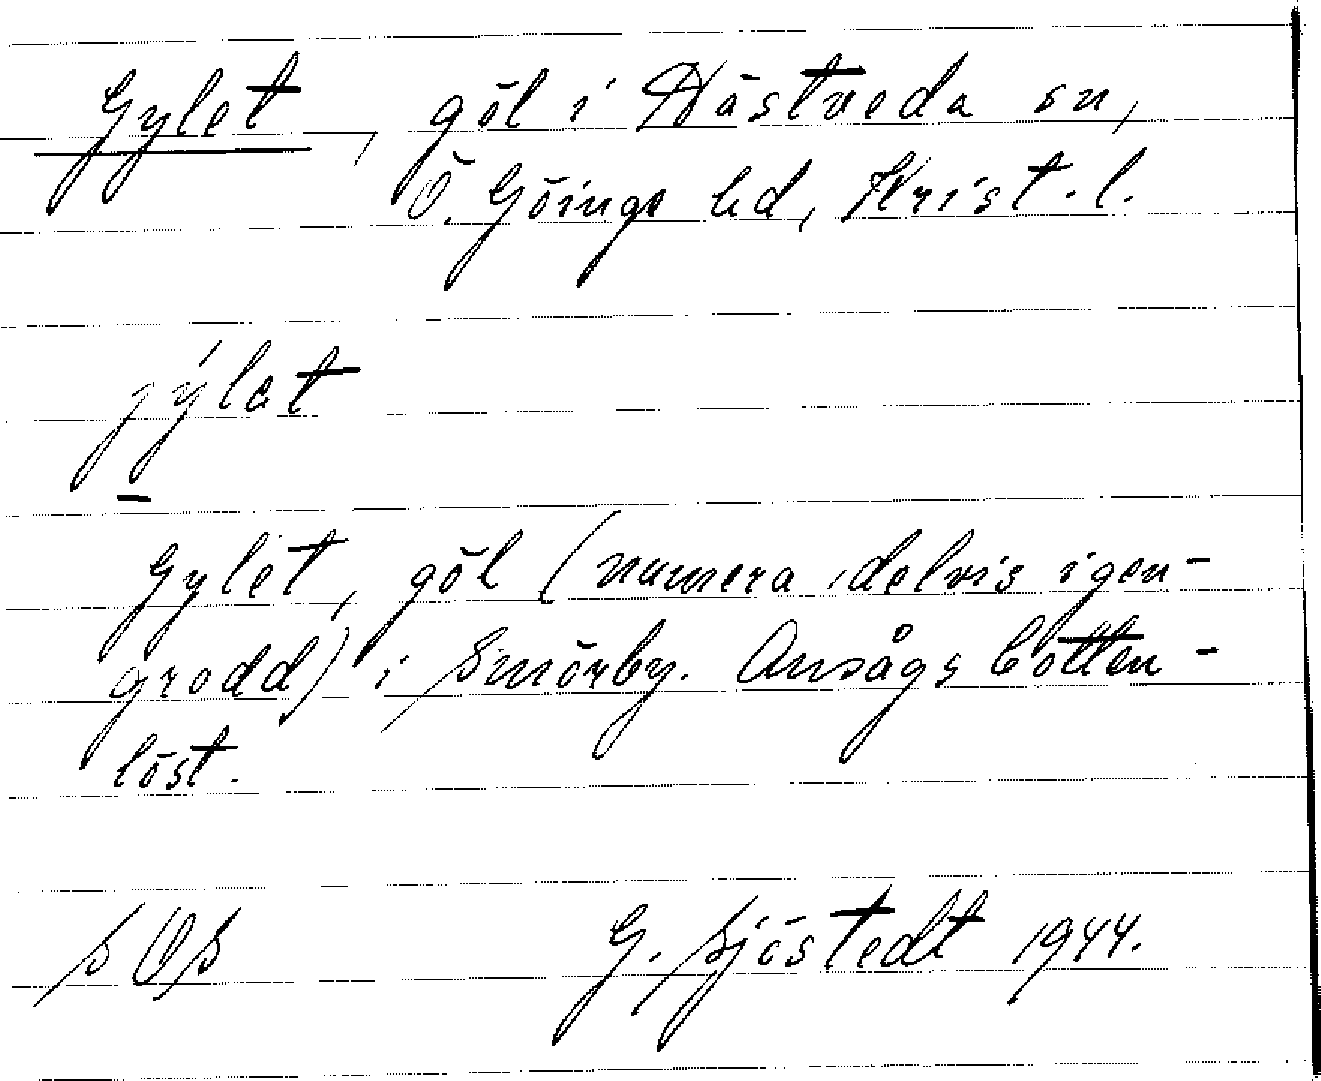 Gylet, göl i Hästveda sn,
Ö. Göinge hd, Krist. l.
jýlet
Gylet, göl (numera delvis igen-
grodd) i Smörby. Ansågs botten-
löst.
SOS G. Sjöstedt 1944.